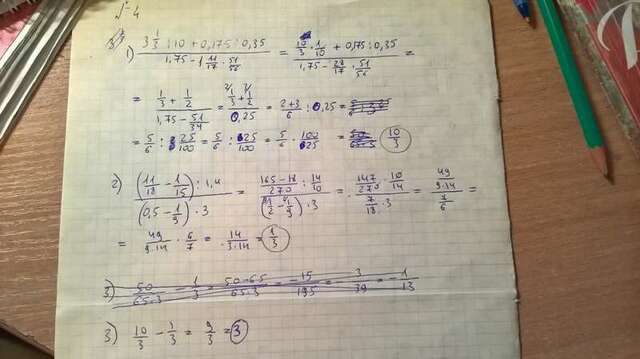 №4
1) (3 1/3 : 10 + 0,175 : 0,35) / (1,75 - 1 11/17 · 51/56) = (10/3 · 1/10 + 0,175 : 0,35) / (1,75 - 28/17 · 51/56) =
= (1/3 + 1/2) / (1,75 - 51/34) = (1/3 + 1/2) / 0,25 = (2+3)/6 : 0,25 =
= 5/6 : 25/100 = 5/6 : 25/100 = 5/6 · 100/25 = 10/3
2) ((11/18 - 1/15) : 1,4) / ((0,5 - 1/9) · 3) = ((165-18)/270 : 14/10) / ((1/2 - 1/9) · 3) = (147/270 · 10/14) / (7/18 · 3) = (49/9·14) / (7/6) =
= 49/9·14 · 6/7 = 14/3·14 = 1/3
3) 50/65·3 - 1/3 = 50-65/65·3 = -15/195 = - 3/39 = - 1/13
3) 10/3 - 1/3 = 9/3 = 3